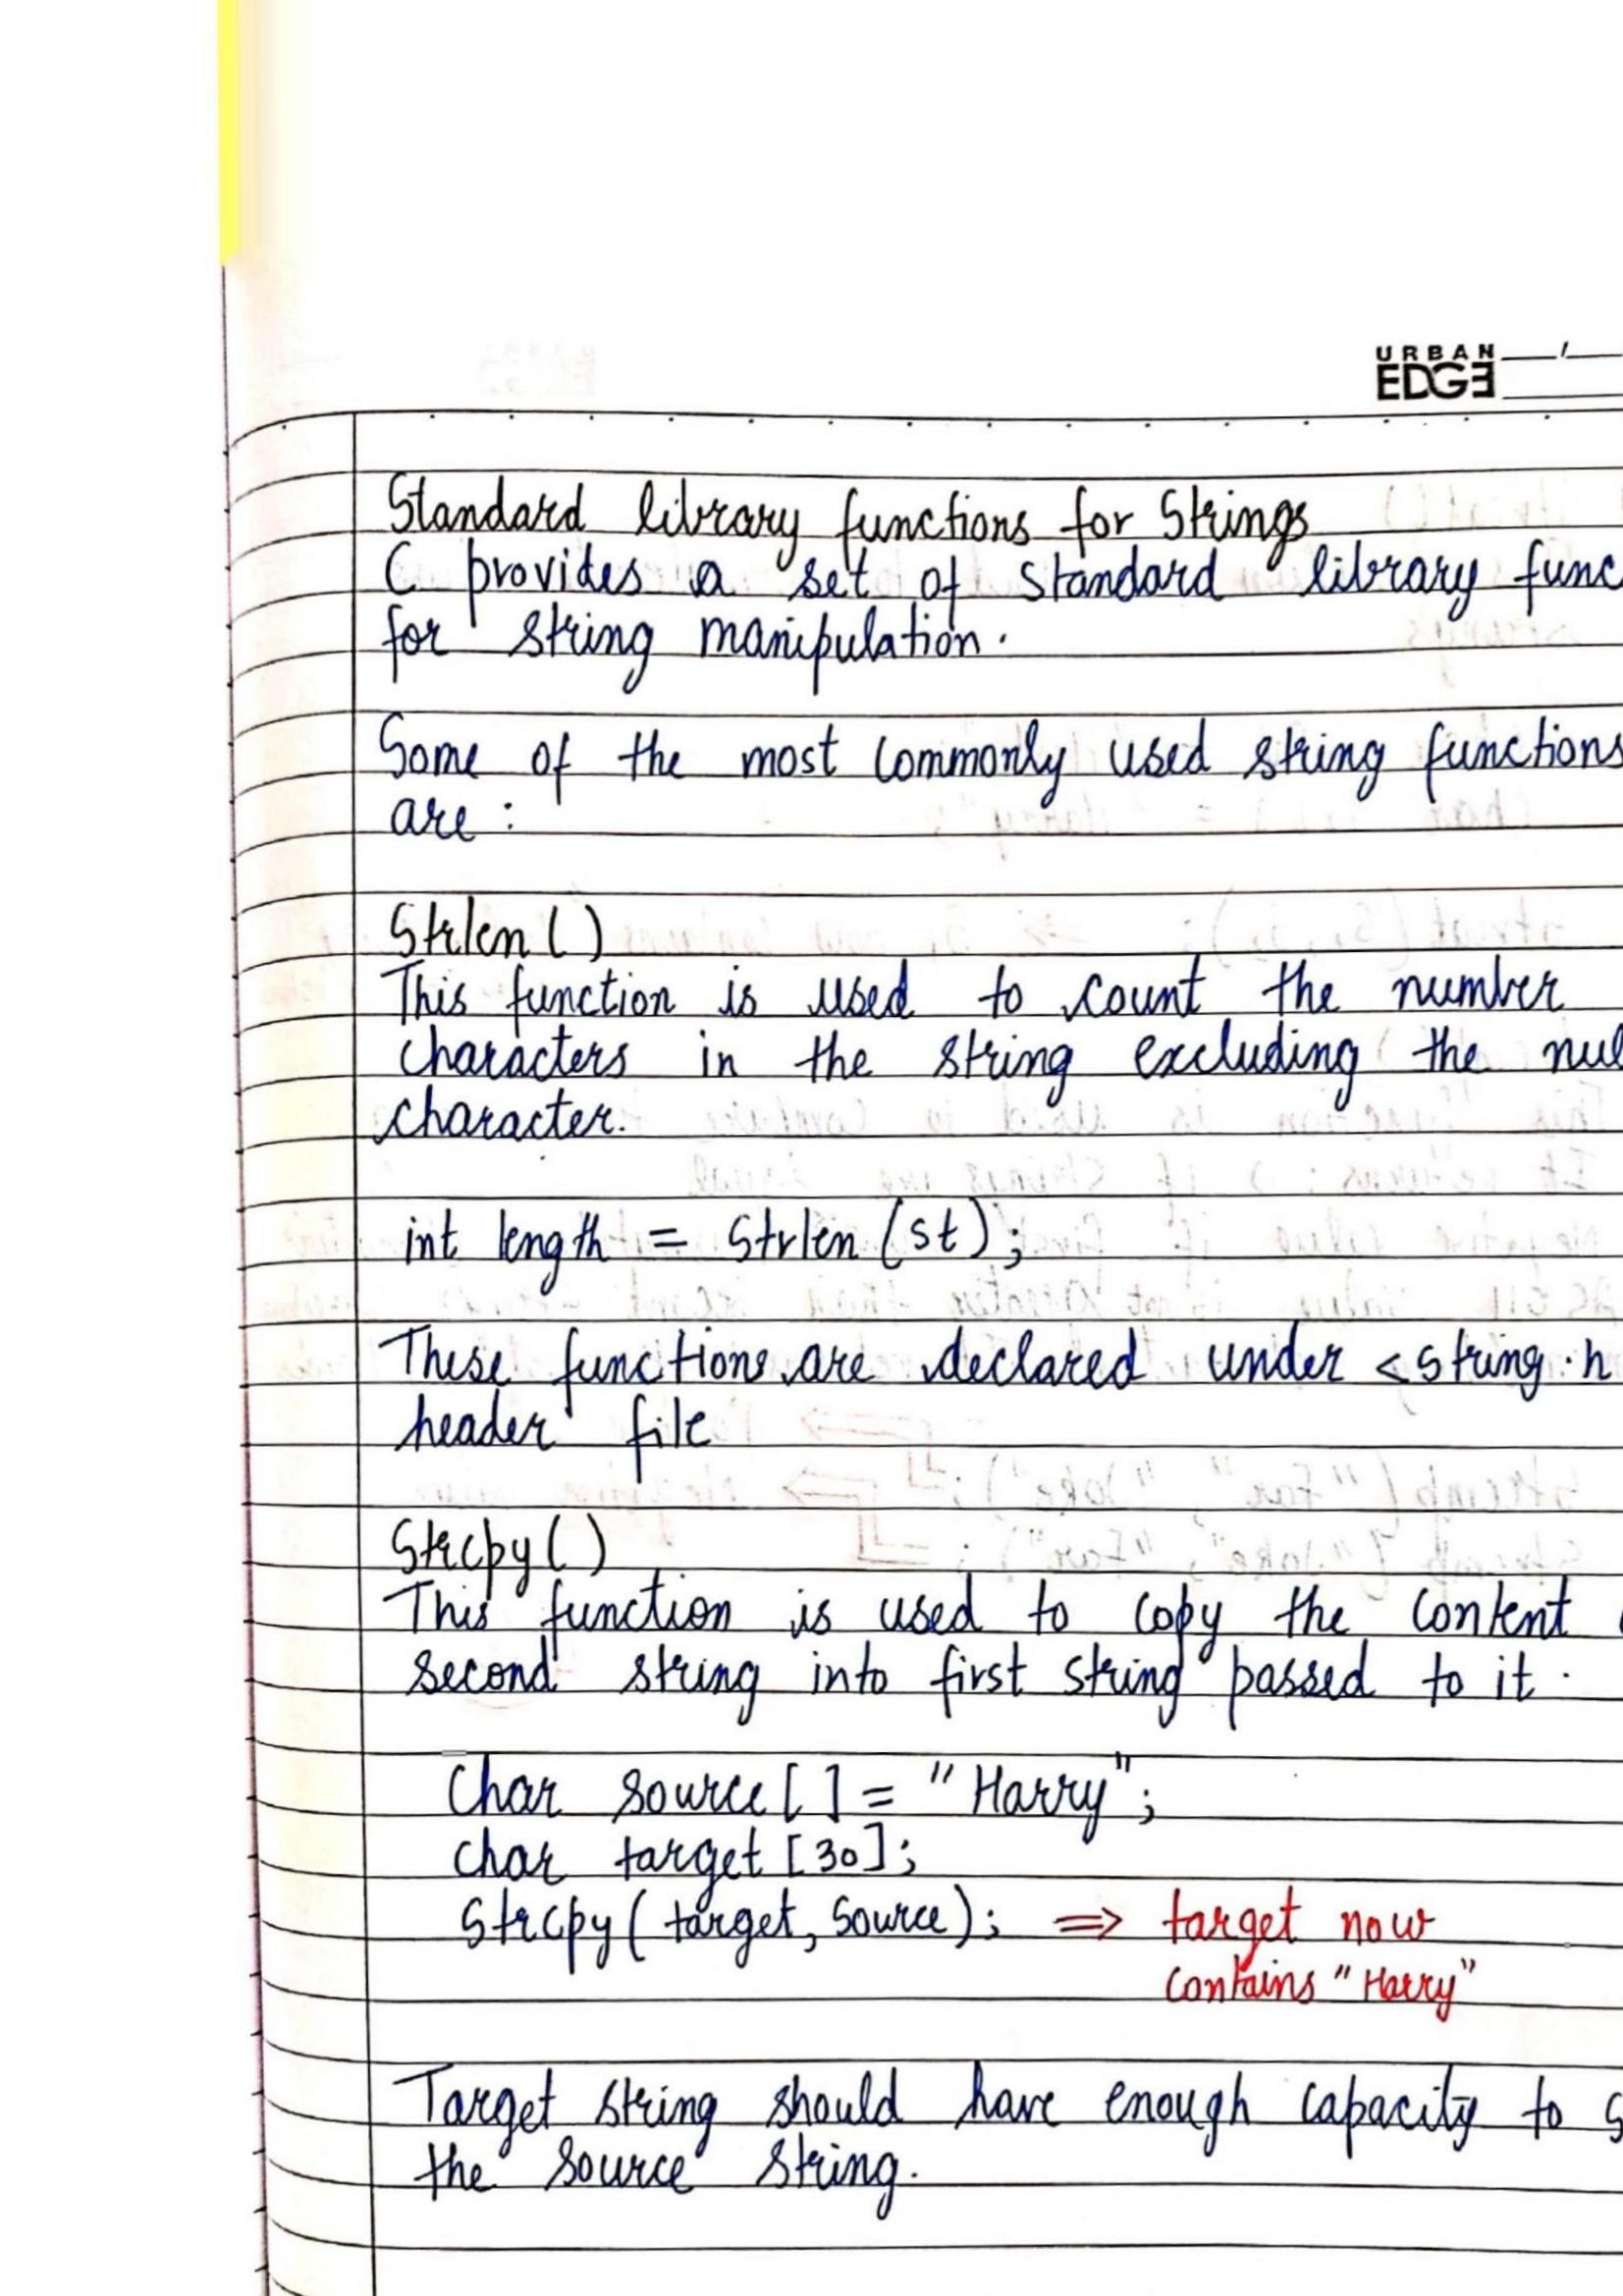 URBAN
EDGE
Standard library functions for Strings
C provides a set of standard library func
for string manipulation.
Some of the most commonly used string functions
are :
Strlen()
This function is used to count the number
characters in the string excluding the nul
character.
int length = Strlen (st);
These functions are declared under <string.h
header file
Strcpy()
This function is used to copy the content
second string into first string passed to it.
Char source[ ] = "Harry";
char target [30];
Strcpy( target, Source); => target now
contains "Harry"
Target string should have enough capacity to s
the source string.